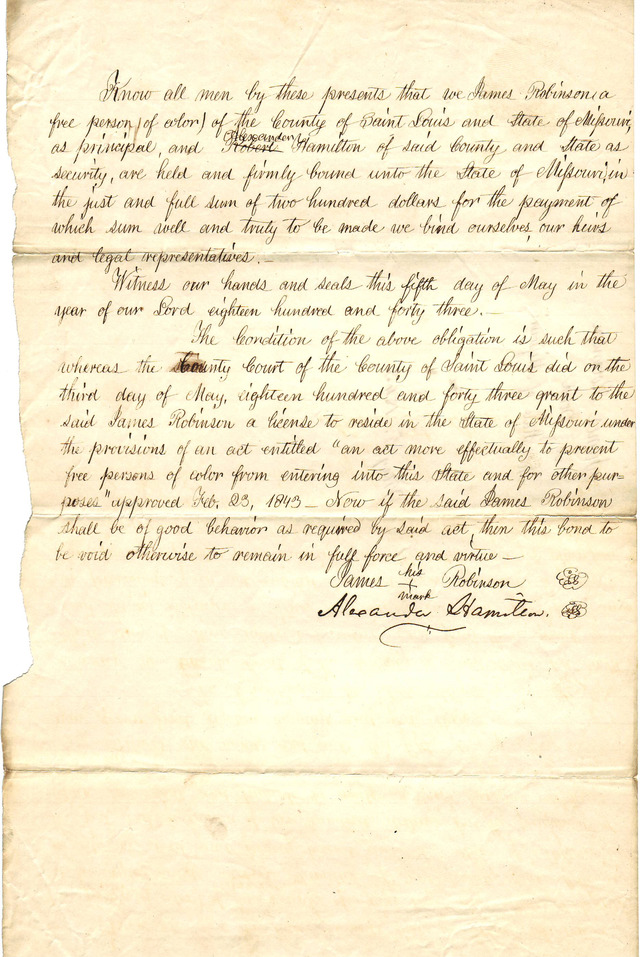 Know all men by these presents that we James Robinson (a
free person (of color) of the County of Saint Louis and State of Missouri,
as principal, and Robert Alexander Hamilton of said County and State as
security, are held and firmly bound unto the State of Missouri, in
the just and full sum of two hundred dollars for the payment of
which sum well and truly to be made we bind ourselves, our heirs
and legal representatives.—
Witness our hands and seals this fifth day of May in the
year of our Lord eighteen hundred and forty three.—
The Condition of the above obligation is such that
whereas the County Court of the County of Saint Louis did on the
third day of May, eighteen hundred and forty three grant to the
said James Robinson a license to reside in the State of Missouri under
the provisions of an act entitled "an act more effectually to prevent
free persons of color from entering into this State and for other pur=
poses" approved Feb. 23, 1843 — Now if the said James Robinson
shall be of good behavior as required by said act, then this bond to
be void otherwise to remain in full force and virtue —
James his + mark Robinson
Alexander Hamilton.